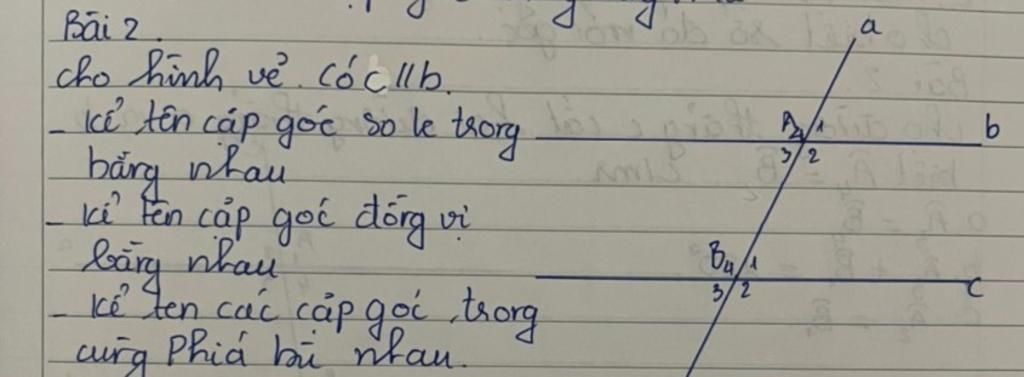 Bài 2.
Cho hình vẽ. Có c//b.
- kể tên cặp góc so le trong
bằng nhau
- kể tên cặp góc đồng vị
bằng nhau
- kể tên các cặp góc trong
cùng phiá bù nhau.
a
A4 1 b
3 2
B4 1
3 2 c